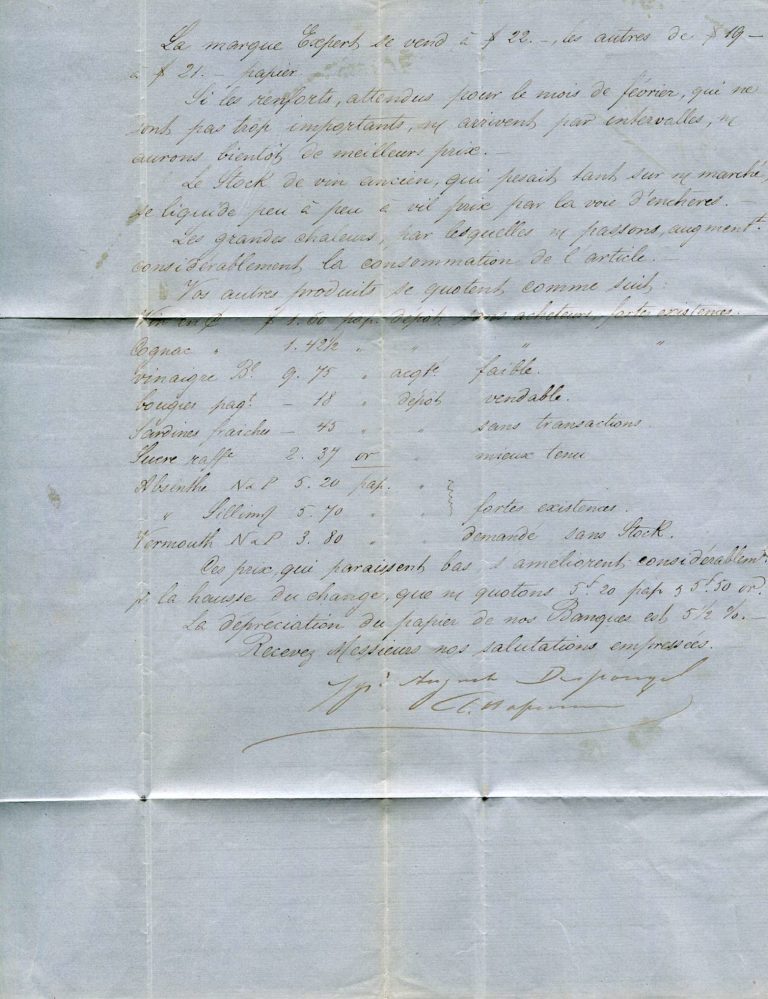 La marque Expert se vend à $ 22. –, les autres de $ 19 –
à $ 21. – papier.
Si les renforts, attendus pour le mois de février, qui ne
sont pas trop importants, ns arrivent par intervalles, ns
aurons bientôt de meilleurs prix. –
Le Stock de vin ancien, qui pesait tant sur ns marché,
se liquide peu à peu à vil prix par la voie d'enchères. –
Les grandes chaleurs, par lesquelles ns passons, augmentt.
considérablement la consommation de l'article. –
Vos autres produits se quotent comme suit:
Vin en Cs $ 1.60 pap. dépôt sans acheteurs, fortes existences.
Cognac " 1.42½ " " " "
vinaigre Bl 9.75 " acqte faible.
bougies paqt. – 18 " dépôt vendable.
Sardines fraiches – 45 " " sans transactions.
Sucre raffé 2.37 or " mieux tenu
Absinthe N & P 5.20 pap. "
" 5.70 " " fortes existences.
Vermouth N & P 3.80 " " demandé sans Stock.
Ces prix, qui paraissent bas s'améliorent considérablemt.
pr la hausse du change, que ns quotons 5f 20 pap & 5f.50 or.
La dépréciation du papier de nos Banques est 5½ %. –
Recevez Messieurs nos salutations empressées.